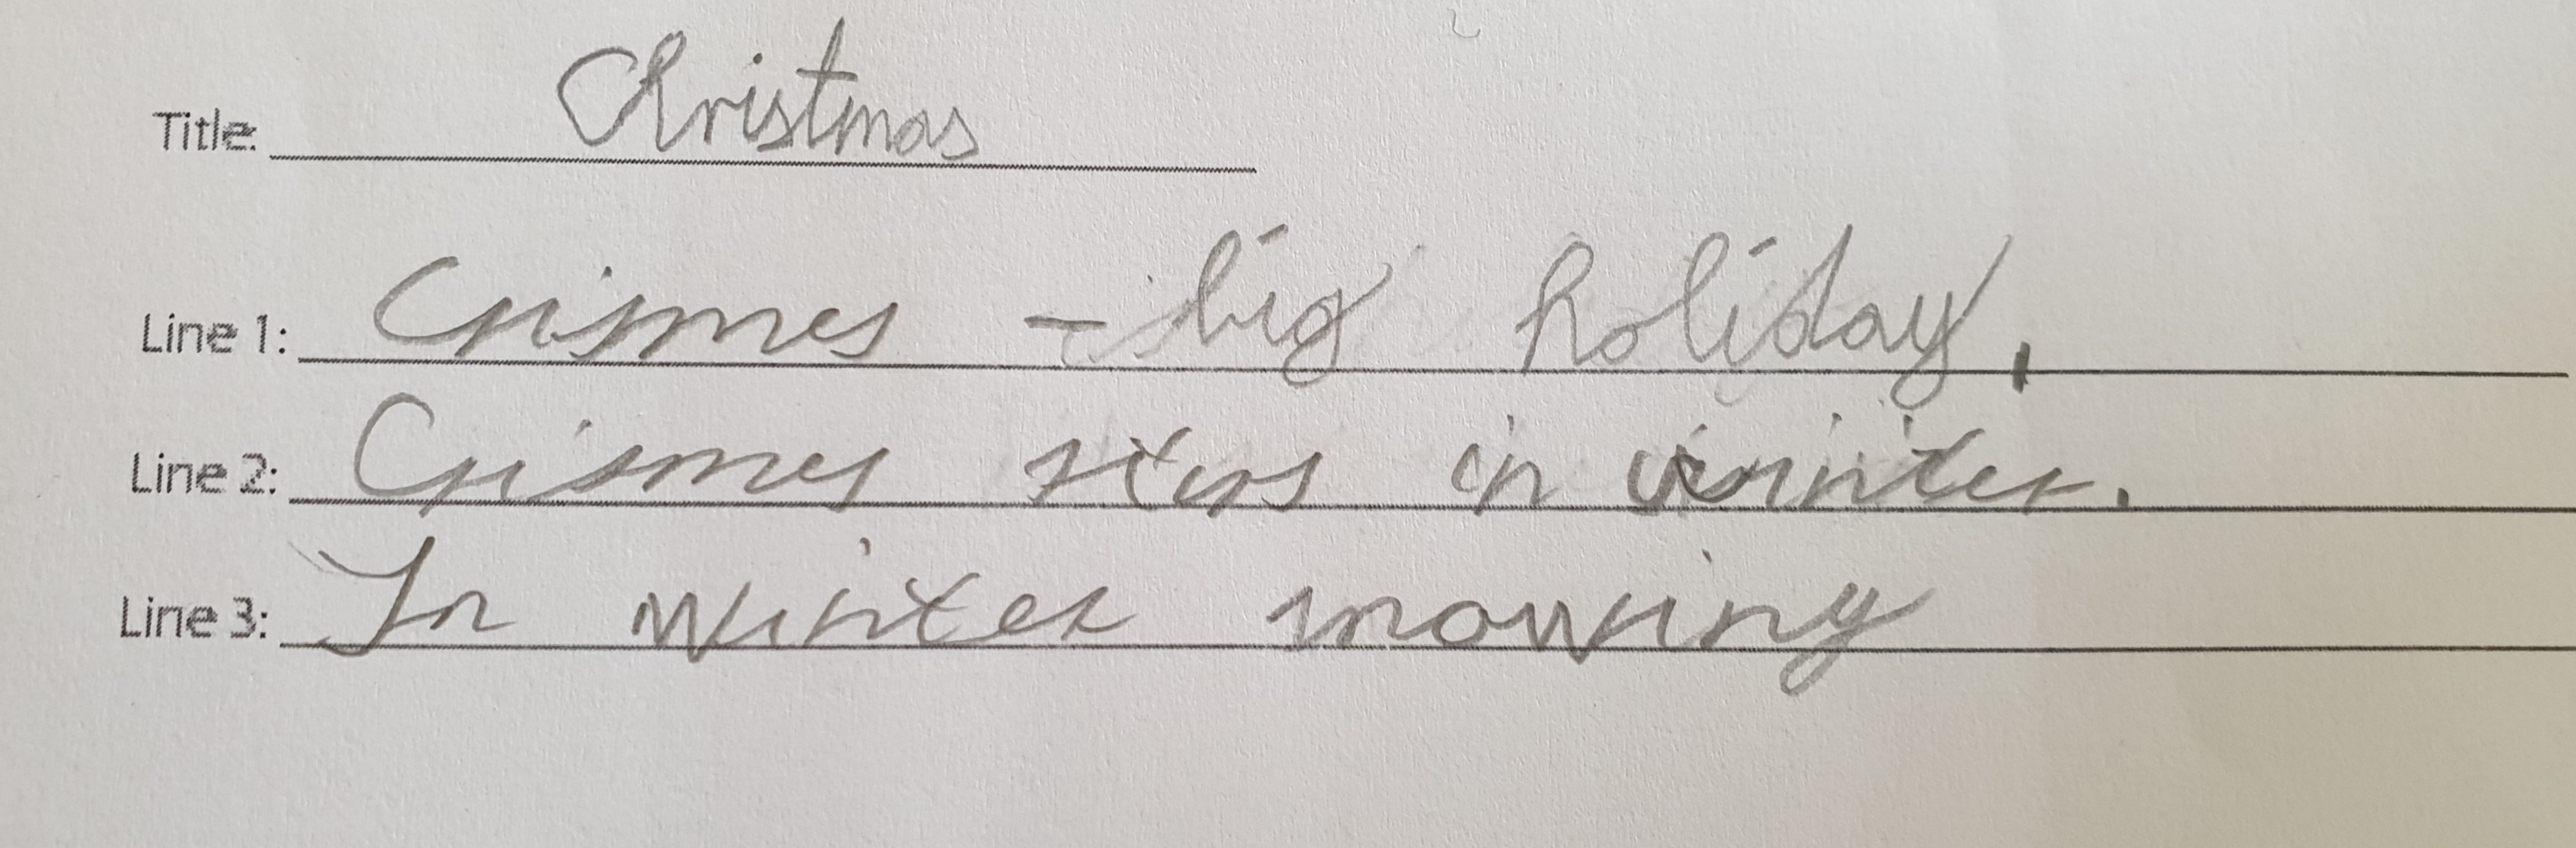 Title: Christmas
Line 1: Crismes - big holiday.
Line 2: Crismes in winter.
Line 3: In winter snowing